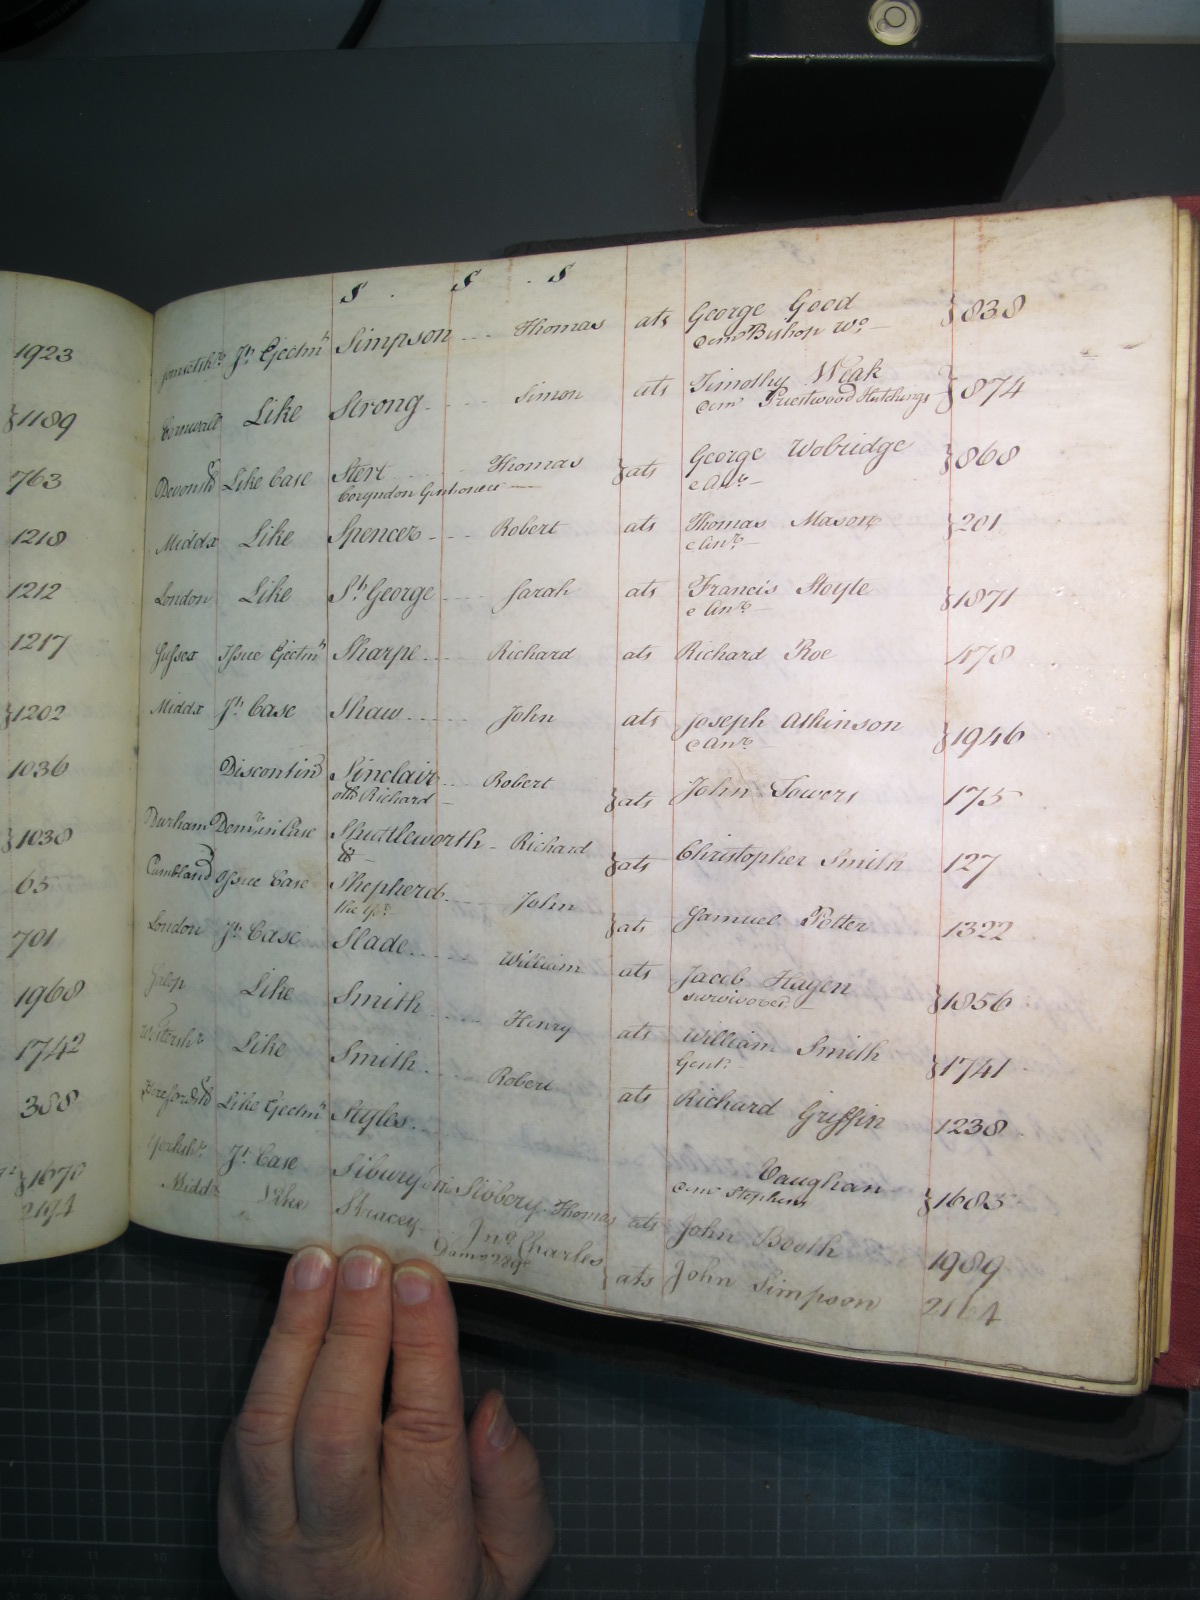 1923
1189
763
1218
1212
1217
1202
1036
1038
65
701
1968
1742
388
1670
2194
S . S . S
Jt. Ejectmt Simpson Thomas ats George Good 838
Dem Bishop Wo
Cornwall Like Strong Simon ats Timothy Weak 874
Dem Priestwood Hutchings
Devonsh Like Case Stert Thomas ats George Wobridge 868
Coryndon Gentonere & Anr
Middx Like Spencer Robert ats Thomas Mason 201
& Anr
London Like St. George Sarah ats Francis Stoyle 1871
& Anr
Sussex Issue Ejectmt Sharpe Richard ats Richard Roe 478
Middx Jt. Case Shaw John ats Joseph Atkinson 1946
& Anr
Discontind Sinclair Robert ats John Towers 175
oths Richard
Durham Demr in Case Shuttleworth Richard ats Christopher Smith 127
&
Cumbland Issue Case Shepherd John ats Samuel Potter 1322
the yor
London Jt. Case Slade William ats Jacob Hagen 1856
survivor
Salop Like Smith Henry ats William Smith 1741
Gent.
Like Smith Robert ats Richard Griffin 1238
Herefordsh Like Ejectmt Styles Vaughan 1683
Dem Stephens
Yorkshr Jt. Case Sibury Sibbery Thomas ats John Booth 1989
Middx Like Stracey Jno. Charles ats John Simpson 2164